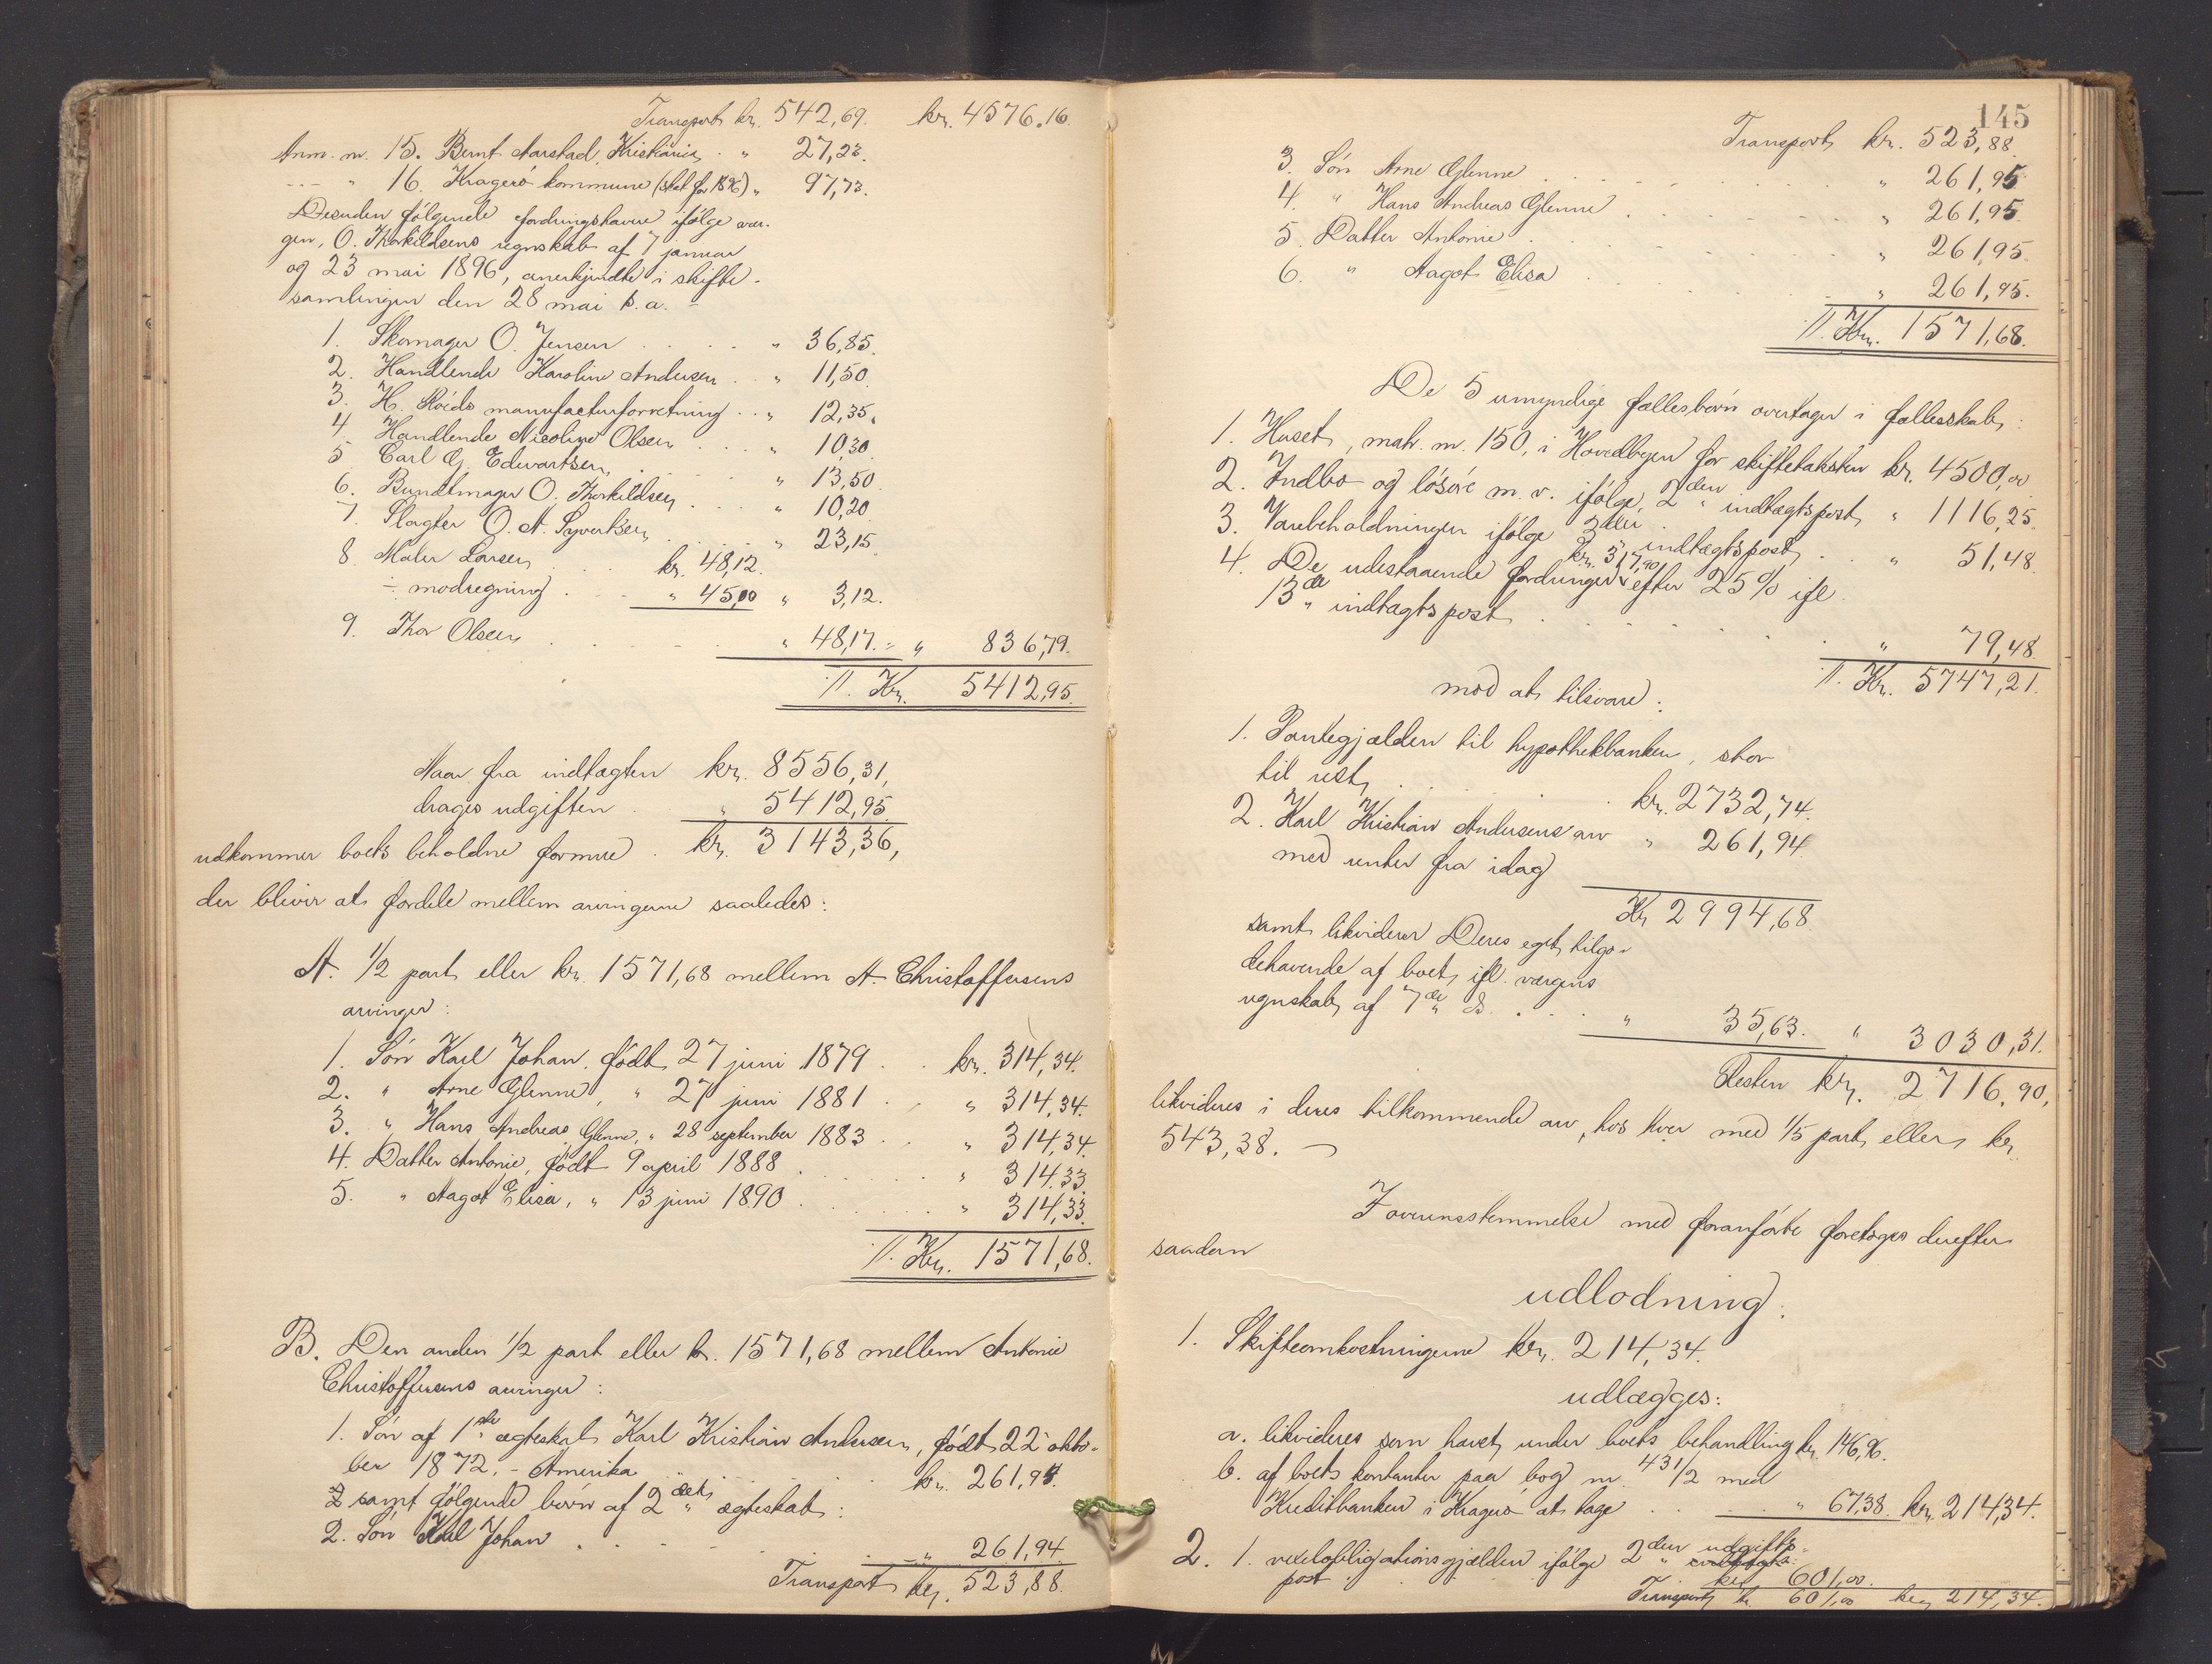 Transport kr. 542,69. kr. 4576.16
Anm. nr. 15. Bernt Aarstad, Kristiania . " 27,23.
--- " 16. Kragerö kommune (skat for 1896) " 97,73.
Desuden følgende fordringshavere ifølge vær-
gen, O. Thorkildsens regnskab af 7 januar
og 23 mai 1896, anerkjendte i skifte-
samlingen den 28 mai s. a. -
1. Skomager O. Jensen . . . . " 36,85.
2. Handlende Karoline Andersen . . " 11,50.
3. H. Röeds manufacturforretning . . " 12,35.
4 Handlende Nicoline Olsen . . . " 10,30.
5 Carl G. Edvartsen . . . " 13,50
6. Bundtmager O. Thorkildsen . . . " 10,20
7. Slagter O. A. Syvertsen . . . . " 23,15.
8. Maler Larsen . . . kr. 48,12.
÷ modregning . . " 45,00 " 3,12.
9. Thor Olsen . . . . " 48,17. = " 836,79.
Tl. Kr. 5412,95.
Naar fra indtægten kr. 8556,31,
drages udgiften . " 5412,95
udkommer boets beholdne formue . kr. 3143,36,
der bliver at fordele mellem arvingerne saaledes:
A. 1/2 part eller kr. 1571,68 mellem A. Christoffersens
arvinger:
1. Sön Karl Johan, födt 27 juni 1879 . . kr. 314,34.
2. " Arne Glenne, " 27 juni 1881 . . " 314,34.
3. " Hans Andreas Glenne, " 28 september 1883 . . " 314,34.
4. Datter Antonie, födt 9 april 1888 . . . . " 314.33.
5. " Aagot Elisa, " 13 juni 1890 . . . . . " 314,33.
Tl. Kr. 1571,68.
B. Den anden 1/2 part eller kr. 1571,68 mellem Antonie
Christoffersens arvinger:
1. Sön af 1ste ægteskab Karl Kristian Andersen, födt 22 okto-
ber 1872, - Amerika . . . . kr. 261,94.
samt følgende børn af 2det ægteskab:
2. Sön Karl Johan . . . . . " 261,94
Transport kr. 523,88.
145
Transport kr. 523,88
3. Sön Arne Glenne . . . . . " 261,95
4. " Hans Andreas Glenne . . . . " 261,95.
5. Datter Antonie . . . . . " 261,95.
6. " Aagot Elisa . . . . . " 261,95.
Tl. Kr. 1571,68.
De 5 umyndige fællesbörn overtager i fællesskab:
1. Huset, matr. nr. 150, i Hovedbyen for skiftetaksten kr. 4500,00
2. Indbo og lösöre m. v. ifölge 2den indtægtspost " 1116,25.
3. Varebeholdningen ifölge 3die indtægtspost . . " 51,48.
4. De udestaaende fordringer kr. 317,90 efter 25% ifl.
13de indtægtspost . . . . . " 79,48
Tl. Kr. 5747,21.
mod at tilsvare:
1. Pantegjælden til hypothekbanken, stor
til rest . . . . kr. 2732,74.
2. Karl Kristian Andersens arv " 261,94
med renter fra idag
Kr 2994,68
samt likviderer Deres eget tilgo-
dehavende af boet ifl. værgens
regnskab af 7de ds. . . . " 35,63. " 3030,31.
Resten kr. 2716.90,
likvideres i deres tilkommende arv, hos hver med 1/5 part eller kr.
543,38. -
I overensstemmelse med foranförte foretoges derefter
saadan
udlodning:
1. Skifteomkostningerne kr. 214,34.
udlægges:
a. likvideres som hævet under boets behandling kr. 146,96.
b. af boets kontanter paa bog nr. 431/2 med
Kreditbanken i Kragerö at tage . . . " 67,38. kr. 214,34.
2. 1. vexelobligationsgjælden ifölge 2den udgifts-
post . . . . kr. 601,00.
Transport kr. 601,00 kr. 214,34.